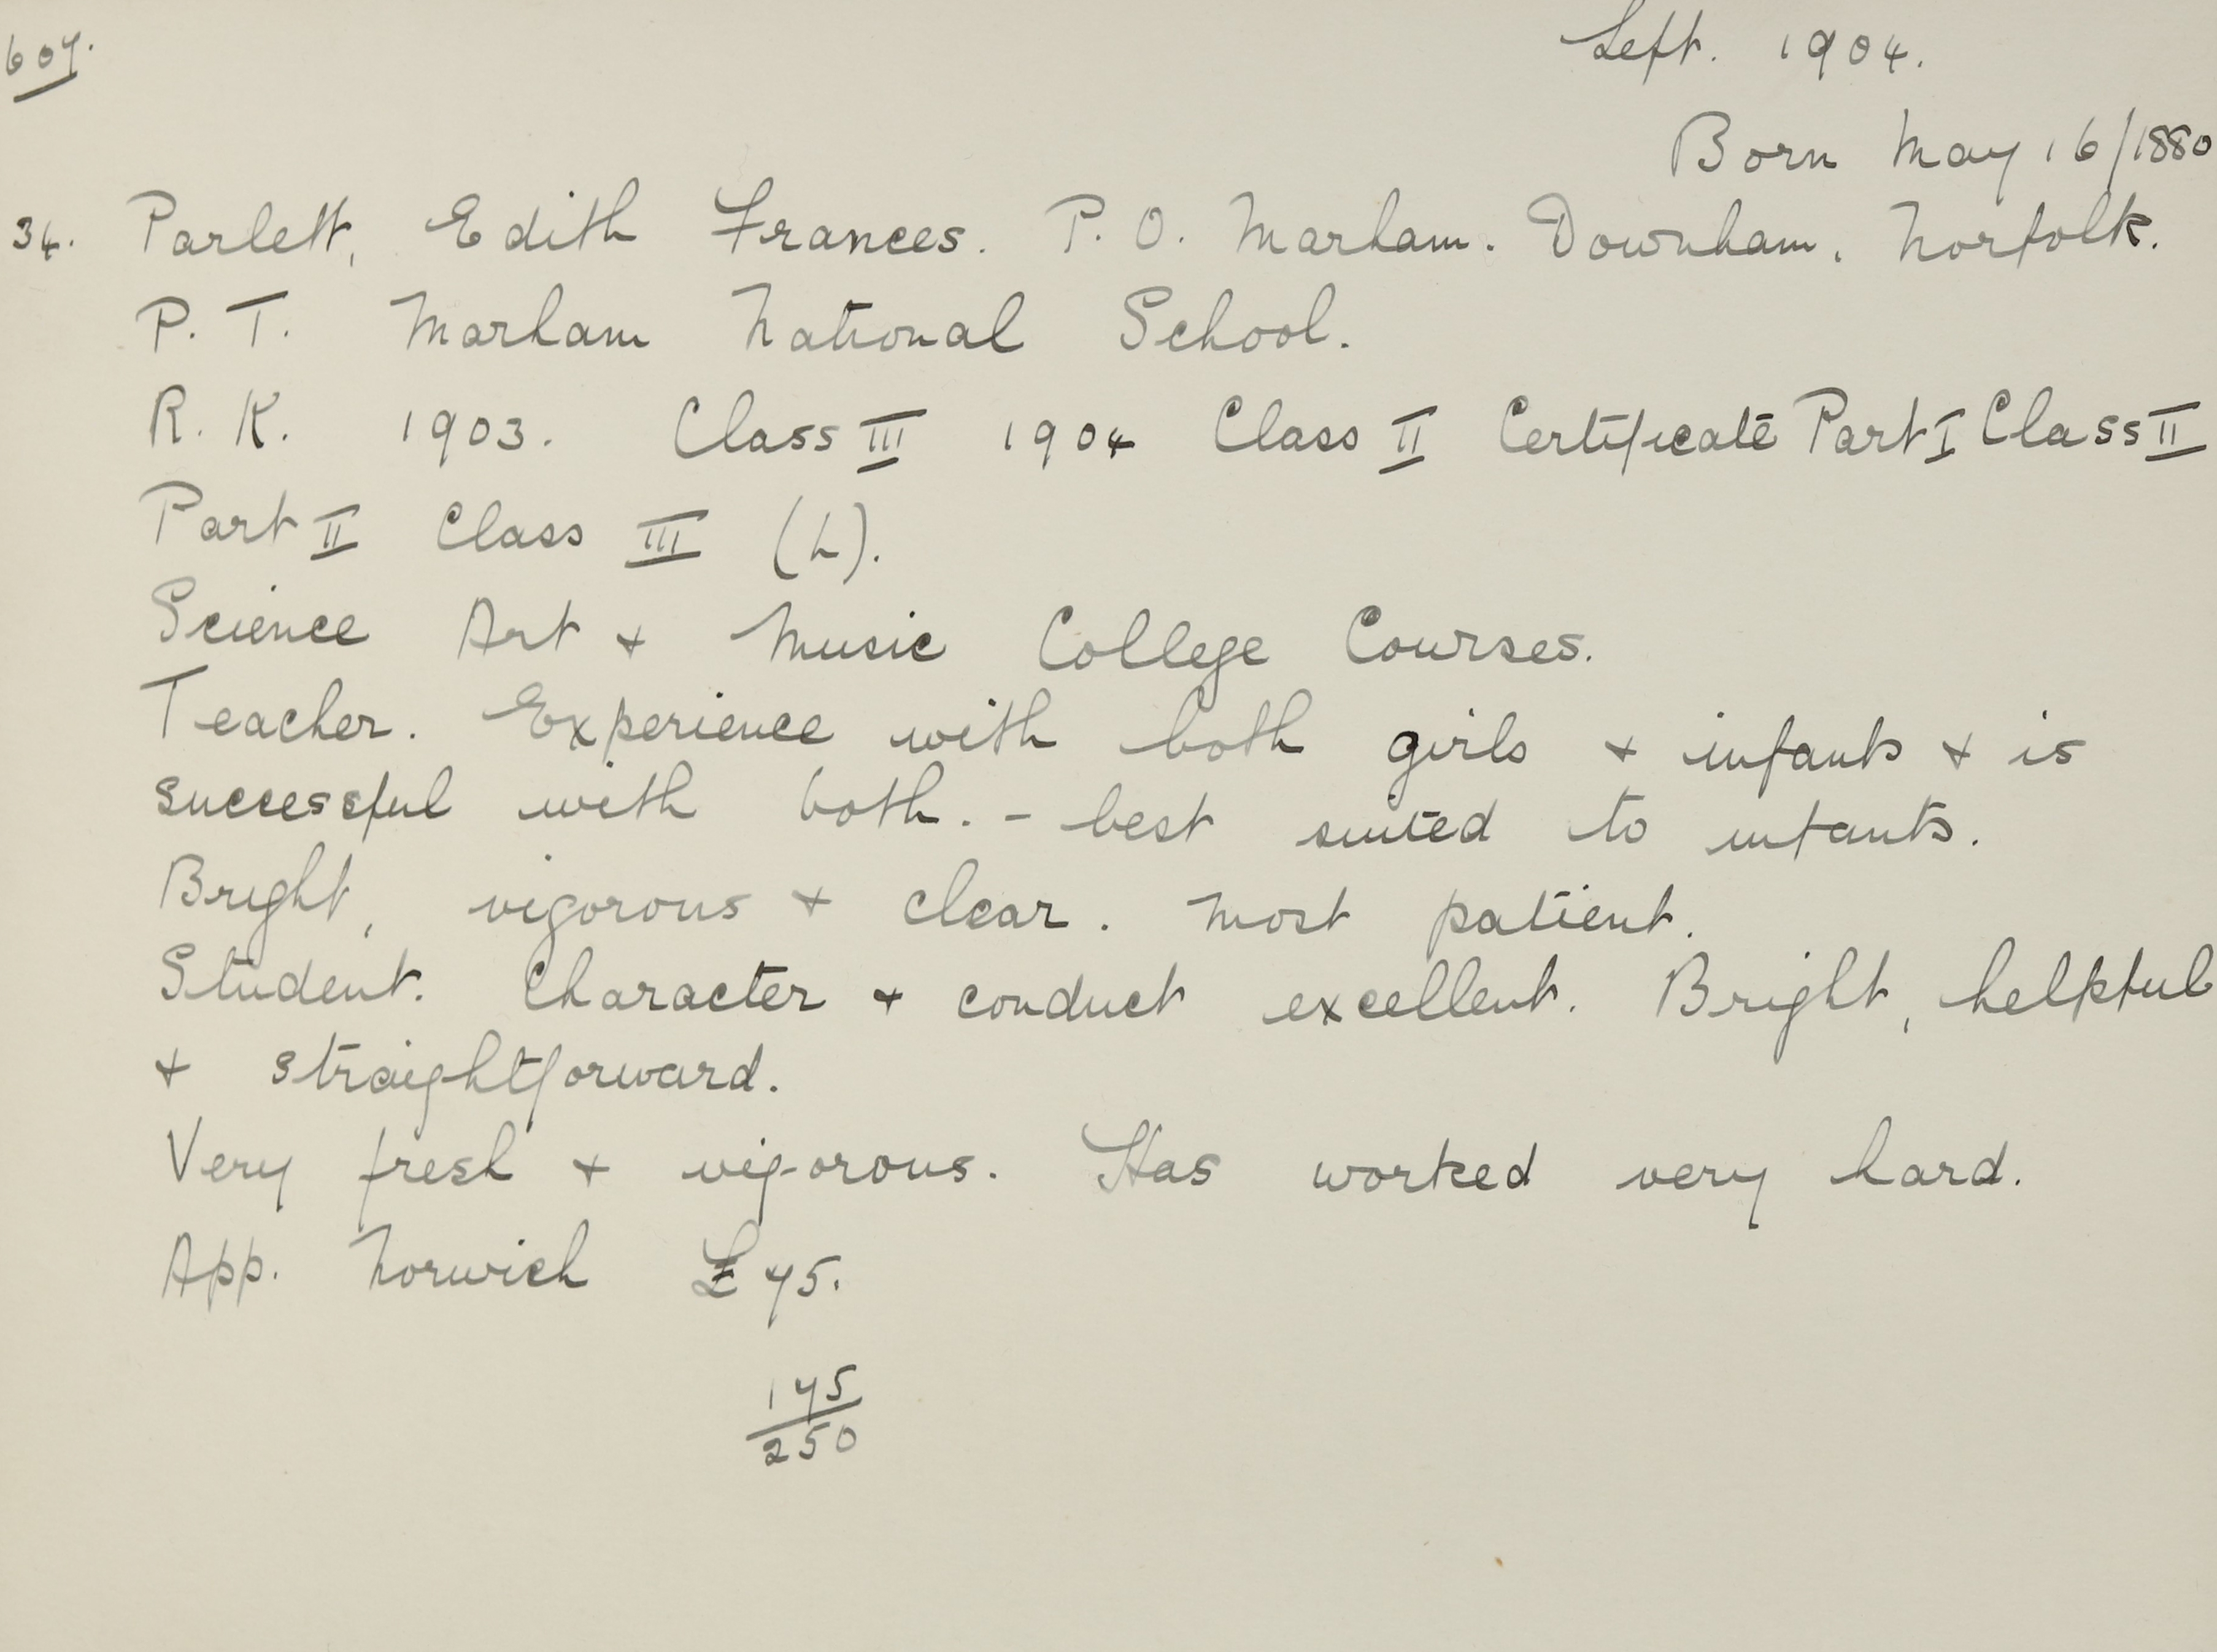 607.
Left. 1904.
Born May 16/1880
34. Parlett, Edith Frances. P.O. Marham. Downham. Norfolk.
P. T. Marham National School.
R. K. 1903. Class III 1904 Class II Certificate Part I Class II
Part II Class III (L).
Science Art + Music College Courses.
Teacher. Experience with both girls + infants + is
successful with both. - best suited to infants.
Bright, vigorous + clear. Most patient.
Student. Character + conduct excellent. Bright, helpful
+ straightforward.
Very fresh + vigorous. Has worked very hard.
App. Norwich £75.
175
250